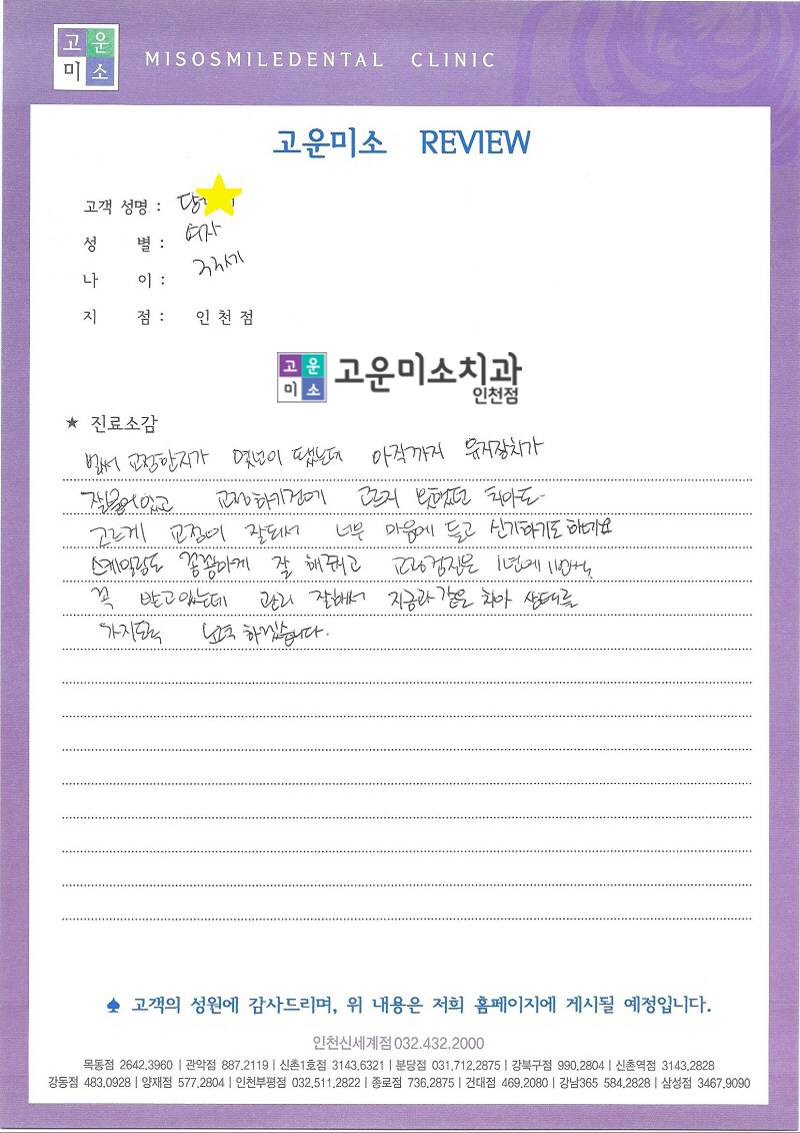 고운
미소
MISOSMILEDENTAL CLINIC
고운미소 REVIEW
고객 성명 :
성 별 : 여자
나 이 : 33세
지 점 : 인천점
고운
미소
고운미소치과
인천점
★ 진료소감
벌써 교정한지가 몇년이 됐는데 아직까지 유지장치가
잘붙어있고 교정하기전에 고르지 못했던 치아도
고르게 교정이 잘되서 너무 마음에 들고 신기하기도 하네요
스케일링도 꼼꼼하게 잘 해주고 검진은 1년에 1번씩
꼭 받고있는데 관리 잘해서 지금과 같은 치아 상태를
가지도록 노력 하겠습니다.
♠ 고객의 성원에 감사드리며, 위 내용은 저희 홈페이지에 게시될 예정입니다.
인천신세계점 032.432.2000
목동점 2642.3960 | 관악점 887.2119 | 신촌1호점 3143.6321 | 분당점 031.712.2875 | 강북구점 990.2804 | 신촌역점 3143.2828
강동점 483.0928 | 양재점 577.2804 | 인천부평점 032.511.2822 | 종로점 736.2875 | 건대점 469.2080 | 강남365 584.2828 | 삼성점 3467.9090